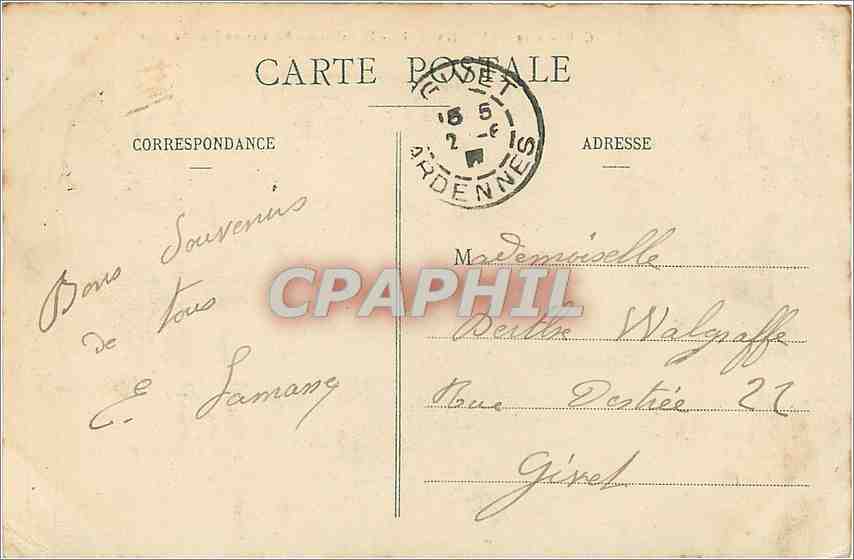 CARTE POSTALE
GIVET
5 5
2 -6
ARDENNES
CORRESPONDANCE
ADRESSE
Bons Souvenirs
de tous
E.
Mademoiselle
CPAPHIL
Berthe Walgraffe
Rue Destrée 22
Givet